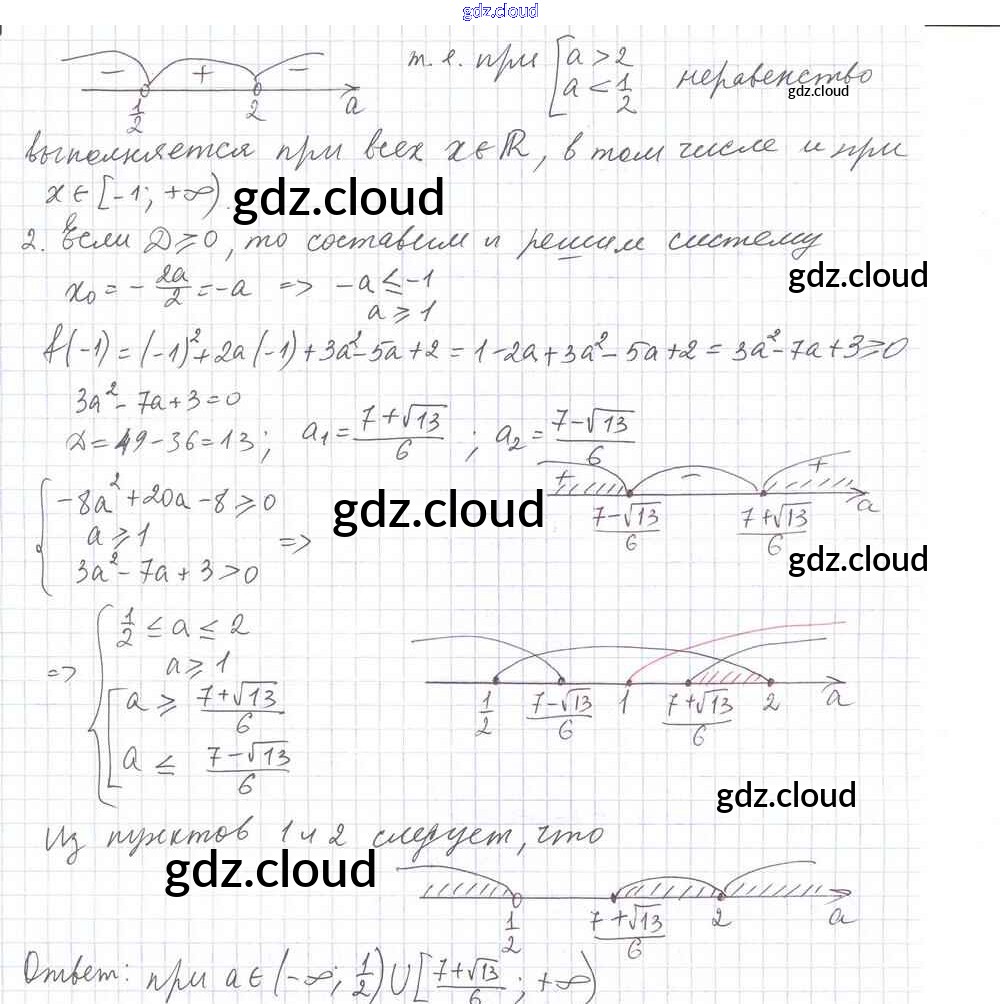 gdz.cloud
− + − т.е. при [ a > 2
a < 1/2 неравенство
1/2 2 a
gdz.cloud
выполняется при всех x ∈ ℝ, в том числе и при
x ∈ [-1; +∞).
gdz.cloud
2. Если D ⩾ 0, то составим и решим систему
gdz.cloud
x₀ = - 2a/2 = -a => -a ≤ -1
a ⩾ 1
f(-1) = (-1)² + 2a(-1) + 3a² - 5a + 2 = 1 - 2a + 3a² - 5a + 2 = 3a² - 7a + 3 ⩾ 0
3a² - 7a + 3 = 0
D = 49 - 36 = 13; a₁ = (7+√13)/6 ; a₂ = (7-√13)/6
+ − +
{ -8a² + 20a - 8 ⩾ 0
a ⩾ 1 =>
3a² - 7a + 3 > 0
gdz.cloud
(7-√13)/6 (7+√13)/6 a
gdz.cloud
=> { 1/2 ≤ a ≤ 2
a ⩾ 1
[ a ⩾ (7+√13)/6
a ≤ (7-√13)/6
1/2 (7-√13)/6 1 (7+√13)/6 2 a
gdz.cloud
Из пунктов 1 и 2 следует, что
gdz.cloud
1/2 (7+√13)/6 2 a
Ответ: при a ∈ (-∞; 1/2) ∪ [(7+√13)/6; +∞)